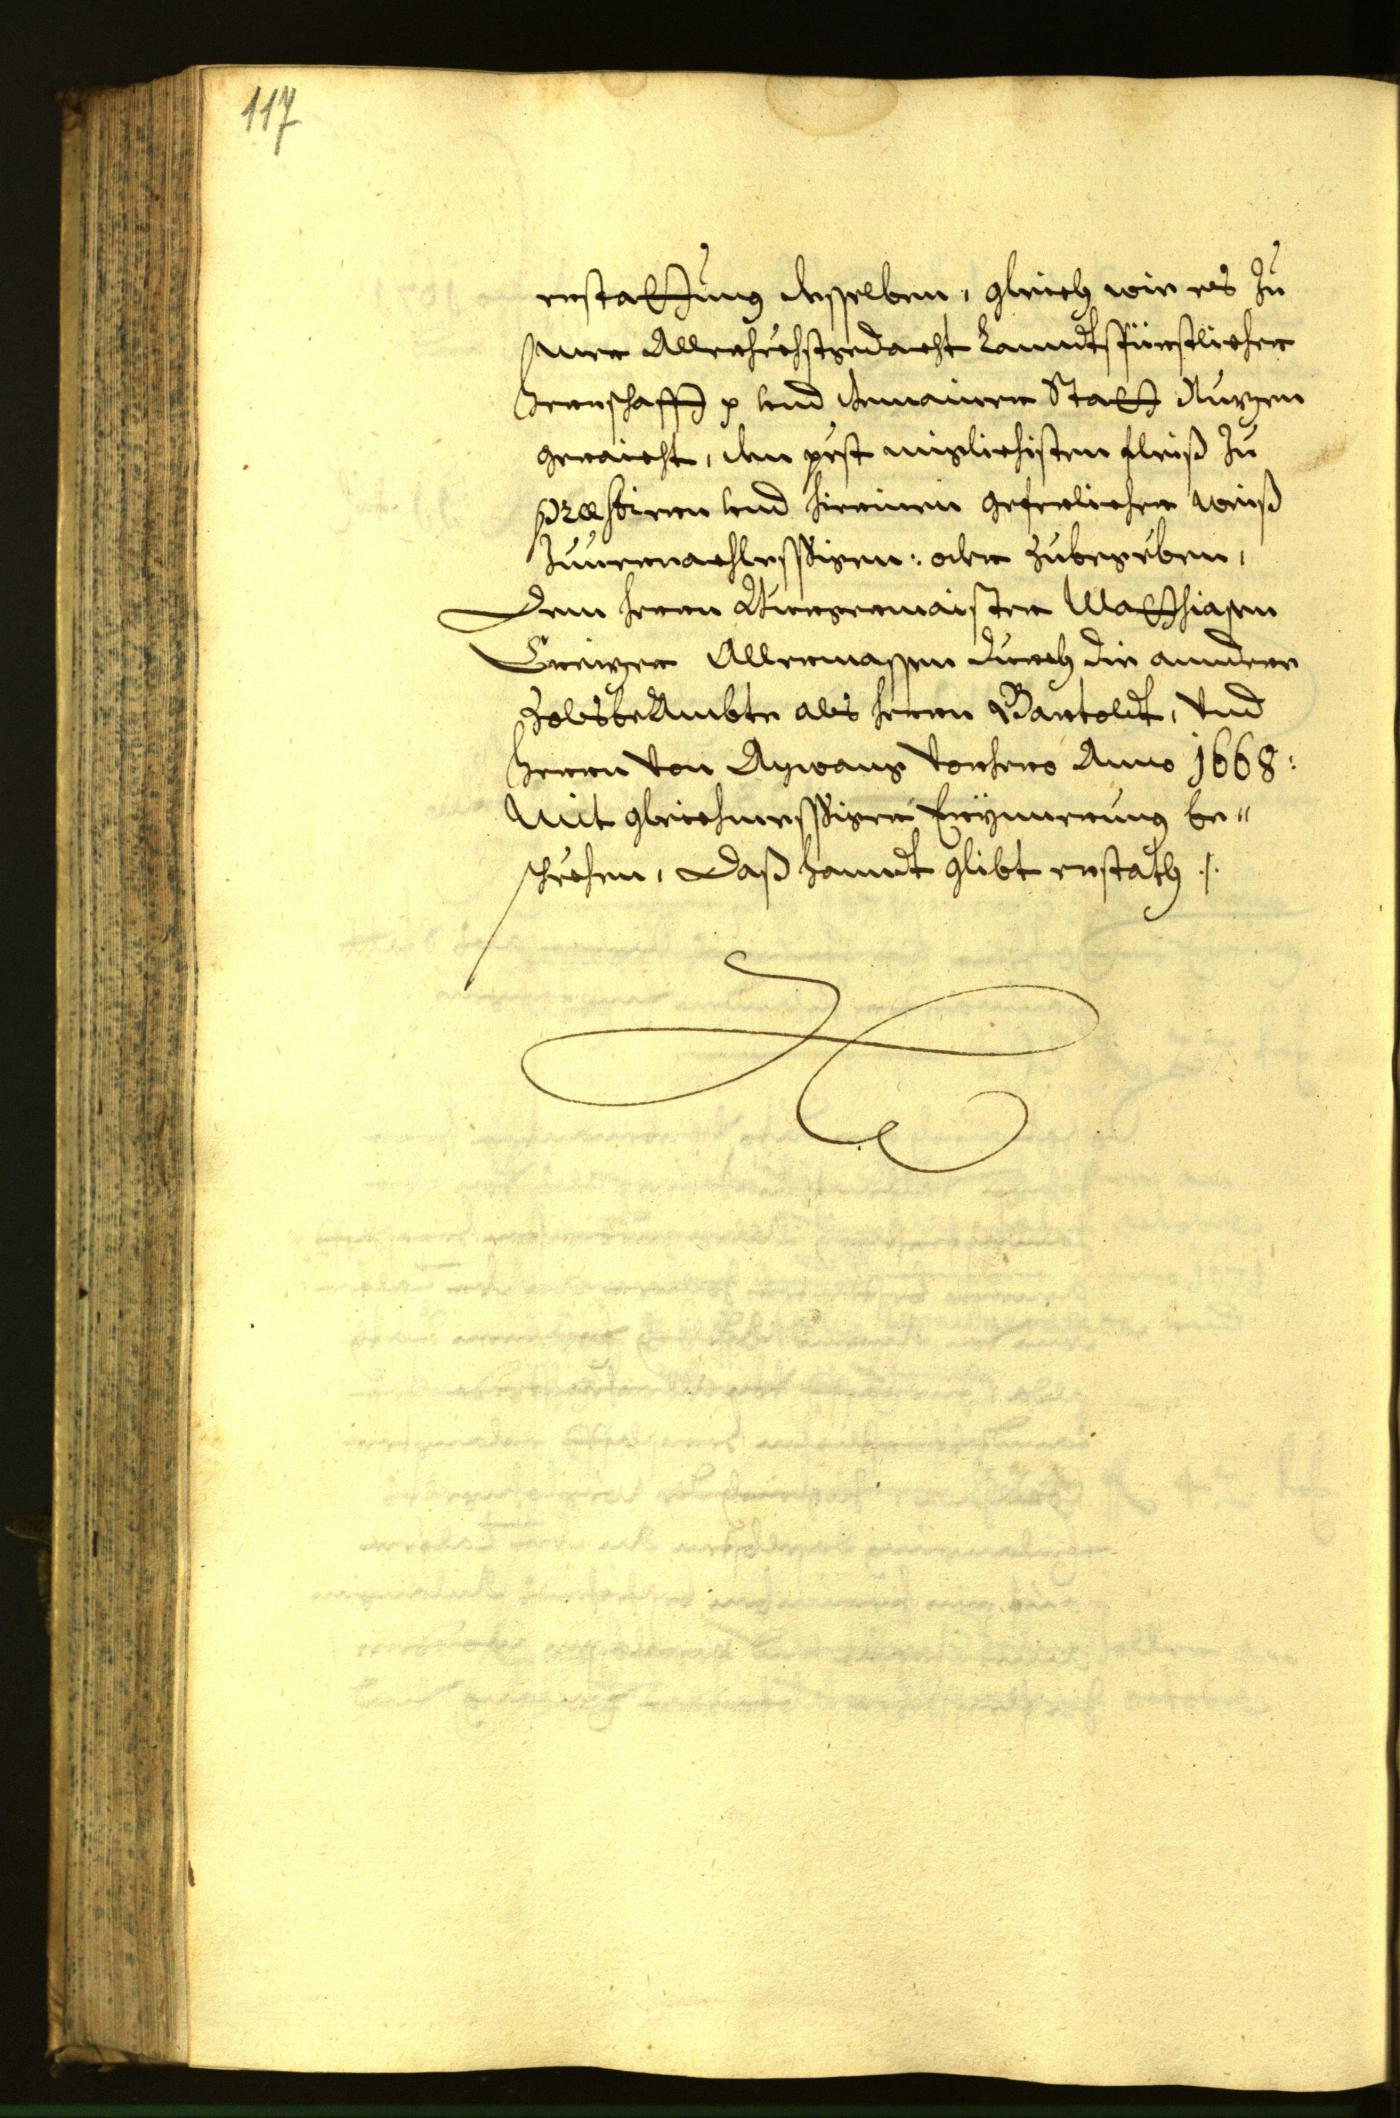 117
erstattung desselben, gleich wie es zu
seiner Allerhöchstgedacht Lanndtsfürstlicher
herrschafft p. vnd Gemainer Statt Nuzen
geraicht, den pest müglichisten fleiß zu
præstiern vnd hierinen gefehrlicher weiß
zuuernachlessigen: oder zubegeben,
Dem herrn Burgermaister Matthiasen
Allermassen durch die anndere
Zolsbeambte als herrn Bartoldt, vnd
herrn von vorhero Anno 1668:
mit gleichmessiger Erÿnnerung be"
schechen, Daß handt glibt erstath ./.